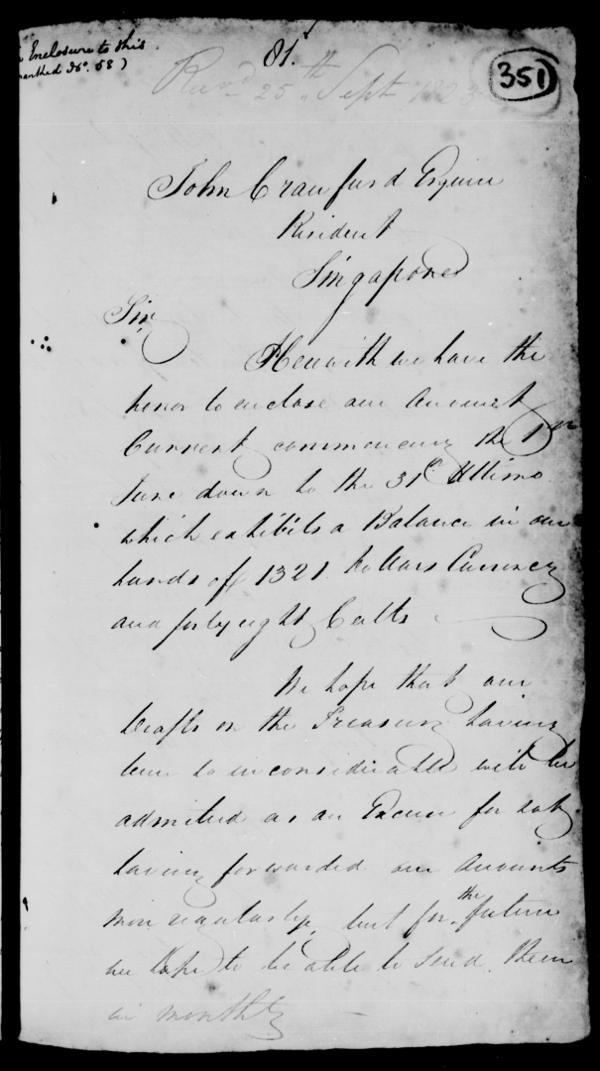 Enclosure to this
marked No. 58)
81.
351
Recd. 25th Sept 1823
John Craufurd Esquire
Resident
Singapore
Sir
Herewith we have the
honor to enclose our Account
Current commencing the 1st
June down to the 31st Ultimo
which exhibits a Balance in our
hands of 1321 Dollars Currency
and forty eight Cents
We hope that our
Drafts on the Treasury having
been so inconsiderable will be
admitted as an Excuse for not
having forwarded our Accounts
more regularly, but for the future
we hope to be able to send them
in monthly